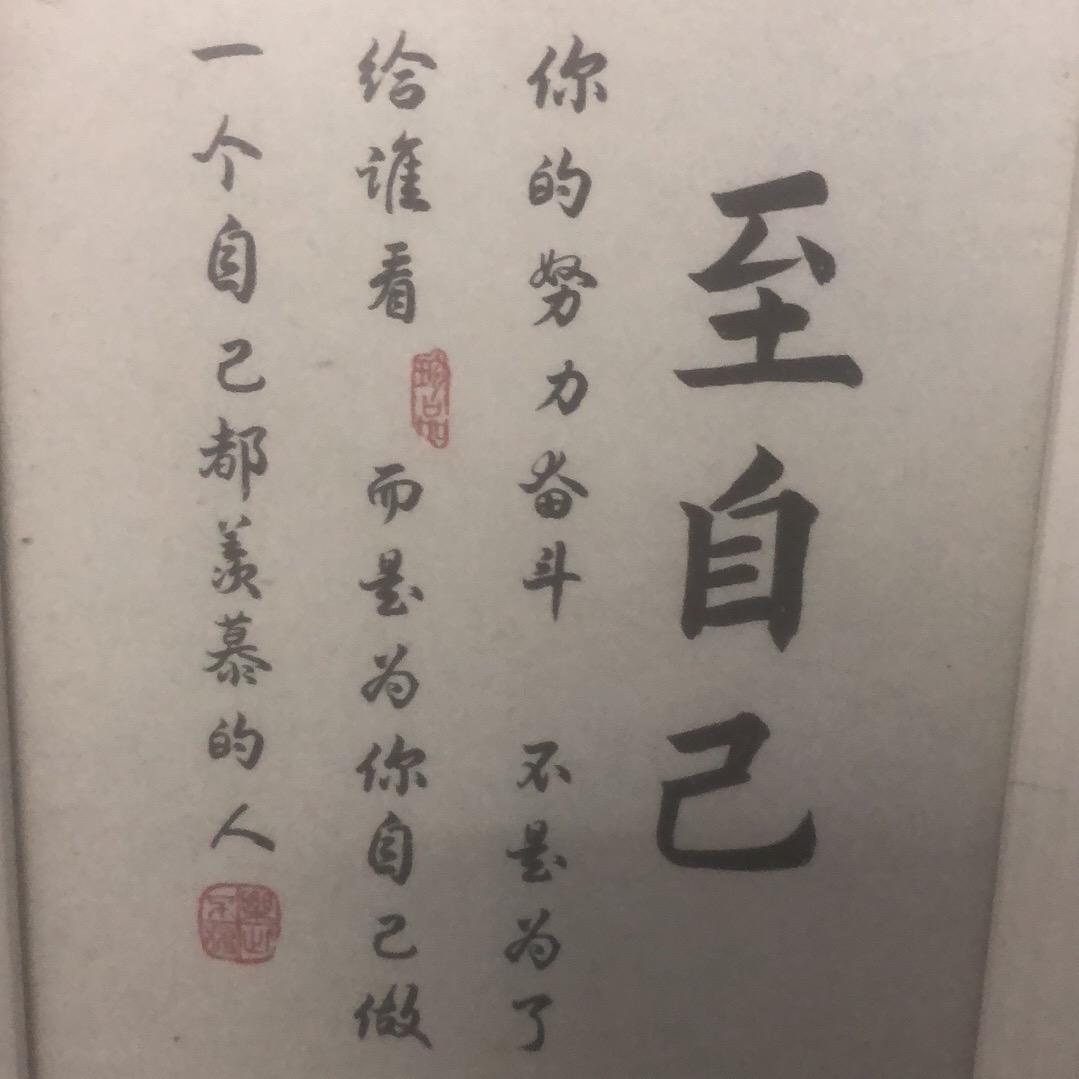 至自己
你的努力奋斗 不是为了
给谁看 而是为你自己做
一个自己都羡慕的人